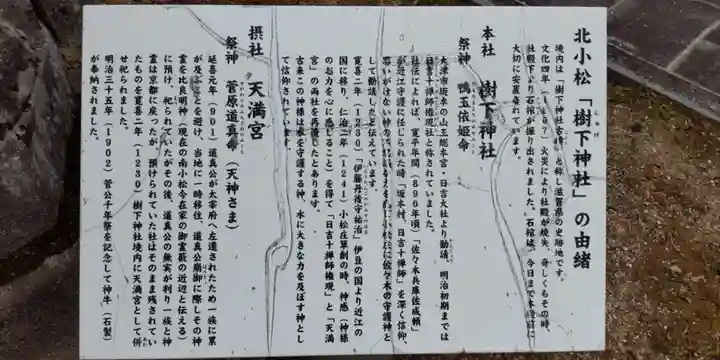 北小松「樹下神社」の由緒
境内は「樹下神社古墳」と称し滋賀県の史跡地です。
文化四年(1807)火災により社殿が焼失、奇しくもその時、
社殿下より石棺が掘り出されました。石棺は、今日まで本殿前に
大切に安置されています。
本社 樹下神社
祭神 鴨玉依姫命
大津市坂本の山王総本宮・日吉大社より勧請、明治初期までは
日吉十禅師権現社と称されていました。
社伝によれば、寛平年間(890年頃)「佐々木兵庫佐成頼」
が近江守護に任じられた時「坂本村、日吉十禅師」を深く信仰、
して勧請したと伝えています。
寛喜二年(1230)「伊藤丹後守祐治」伊豆の国より近江の
国に移り、仁治二年(1241)小松庄草創の時、神感(神様
のお力を心に感じること)を得て「日吉十禅師権現」と「天満
宮」の両社を再建したとあります。
古来この神様は水を守護する神、水に大きな力を及ぼす神とし
て信仰されています。
摂社 天満宮
祭神 菅原道真命(天神さま)
延喜元年(901)道真公が太宰府へ左遷されたため一族に累
が及ぶことを避け、当地に一時移住、道真公崩御に際しその神
霊を比良明神(現在の南小松今在家の御霊殿の近辺と伝える)
に預け祀られていたがその後、道真公の無実が判り一族と神
霊は京都に戻ったが、預けられていた社はそのまま残されてい
たものを寛喜二年(1230)樹下神社境内に天満宮として併
せ祀られました。
明治三十五年(1902)菅公千年祭を記念して神牛(石製)
が奉納されました。